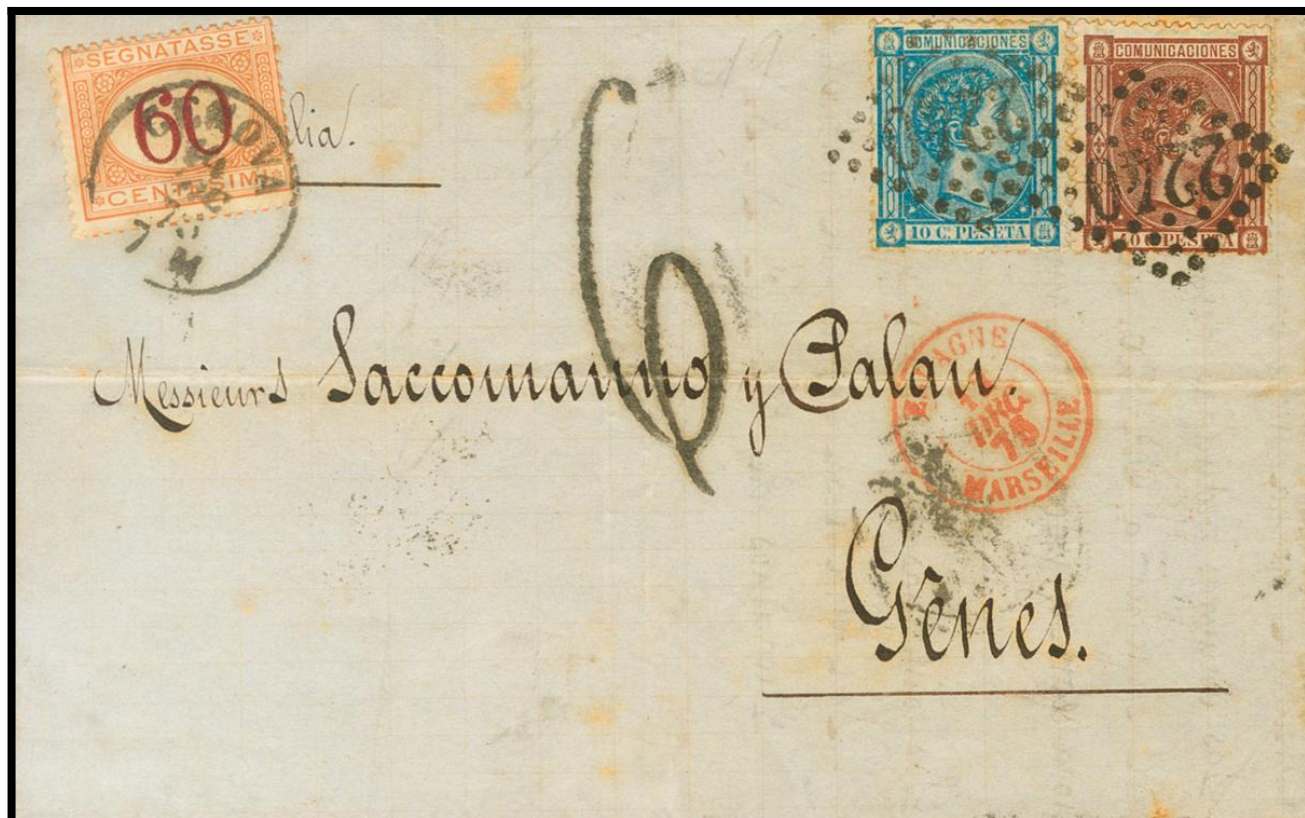 SEGNATASSE
60
CENTESIMI
GENOVA
COMUNICACIONES
10 Cs PESETA
2240
COMUNICACIONES
40 Cs PESETA
2240
6
Messieurs Saccomanno y Palau.
ESPAGNE
DEC
75
MARSEILLE
Gênes.